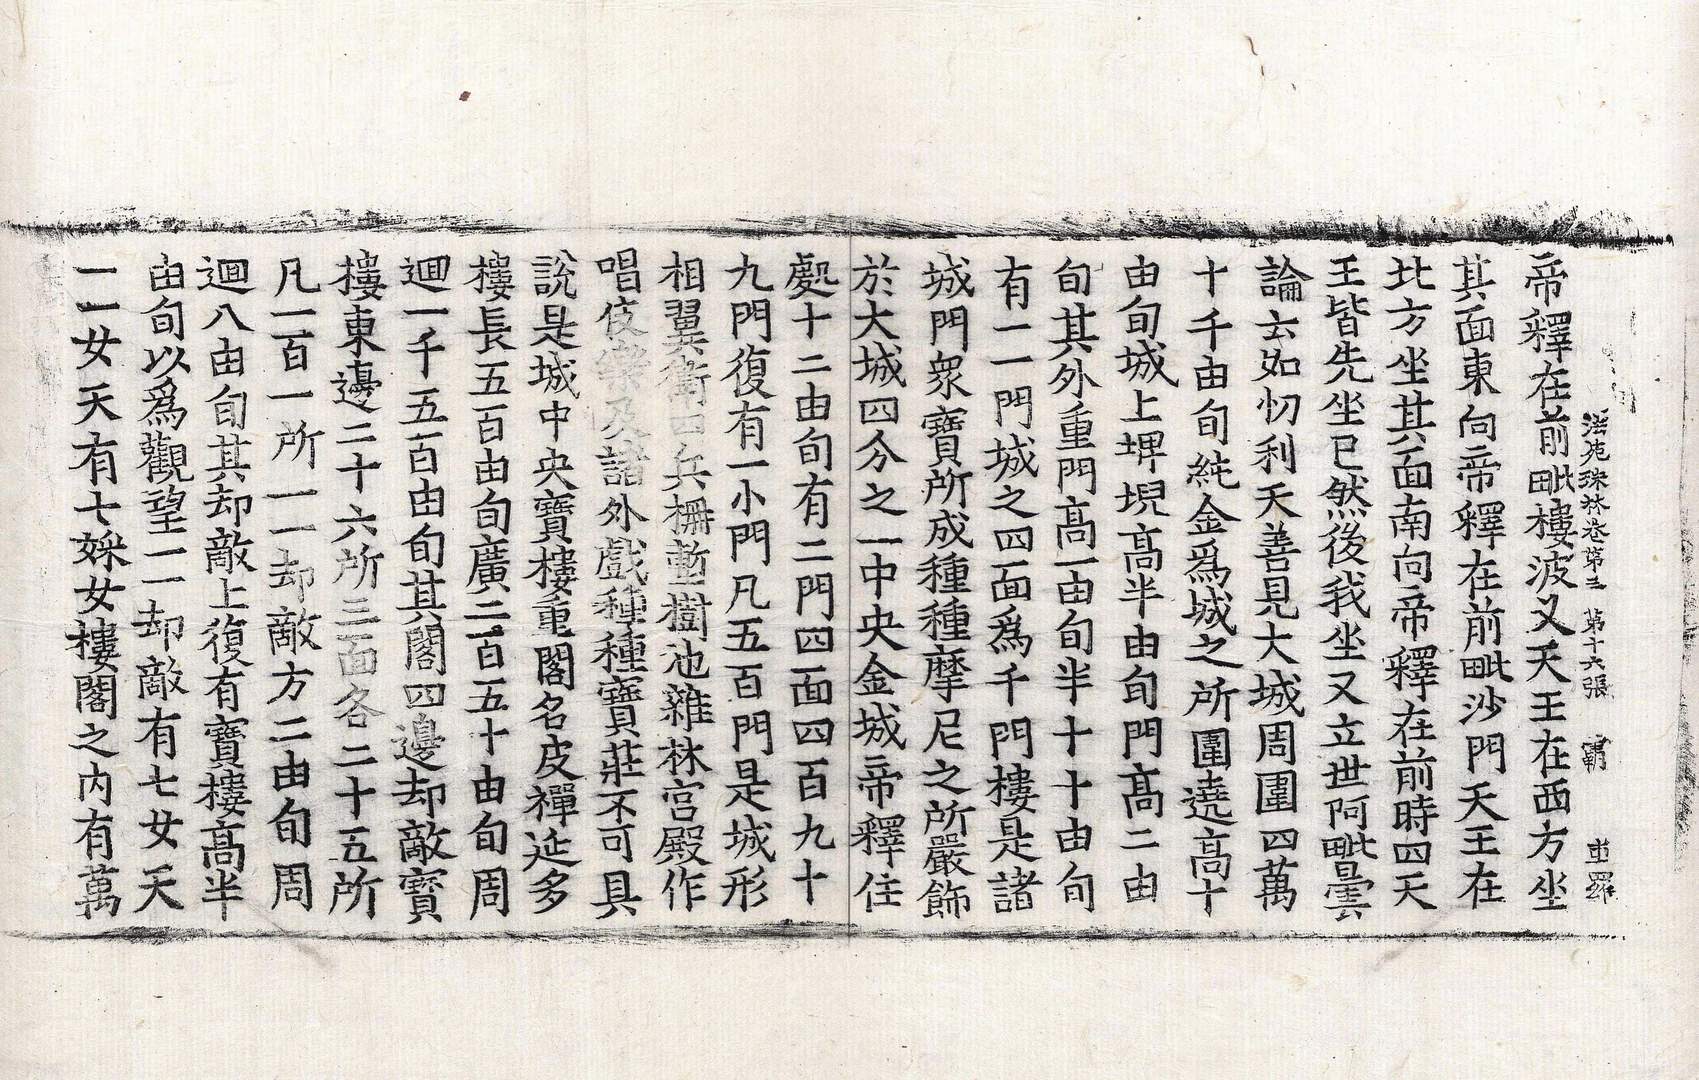 法苑珠林卷第三 第十六張 霸 世羅
帝釋在前毗樓波叉天王在西方坐
其面東向帝釋在前毗沙門天王在
北方坐其面南向帝釋在前時四天
王皆先坐已然後我坐又立世阿毗曇
論云如忉利天善見大城周圍四萬
十千由旬純金爲城之所圍遶高十
由旬城上埤堄高半由旬門高二由
旬其外重門高一由旬半十十由旬
有一一門城之四面爲千門樓是諸
城門眾寶所成種種摩尼之所嚴飾
於大城四分之一中央金城帝釋住
處十二由旬有二門四面四百九十
九門復有一小門凡五百門是城形
相翼衛四兵柵塹樹池雜林宮殿作
唱伎樂及諸外戲種種寶莊不可具
說是城中央寶樓重閣名皮禪延多
樓長五百由旬廣二百五十由旬周
迴一千五百由旬其閣四邊却敵寶
樓東邊二十六所三面各二十五所
凡一百一所一一却敵方二由旬周
迴八由旬其却敵上復有寶樓高半
由旬以爲觀望一一却敵有七女天
一一女天有七婇女樓閣之内有萬